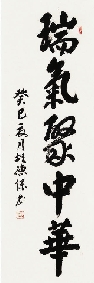 瑞氣聚中華
癸巳夏月